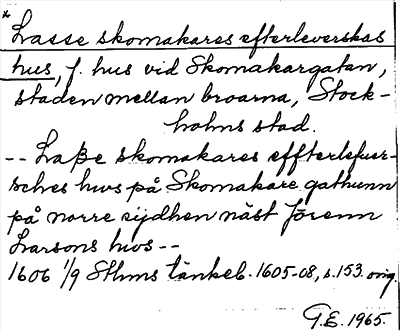 * Lasse skomakares efterleverskas
hus, f. hus vid Skomakargatan,
staden mellan broarna, Stock-
holms stad.
-- Laße skomakares effterlefuer-
sches hws på Skomakare gathunn
på norre sijdhen näst Jörenn
Larsons hws --
1606 1/9 Sthms tänkeb. 1605-08, s. 153. orig.
G.E. 1965.